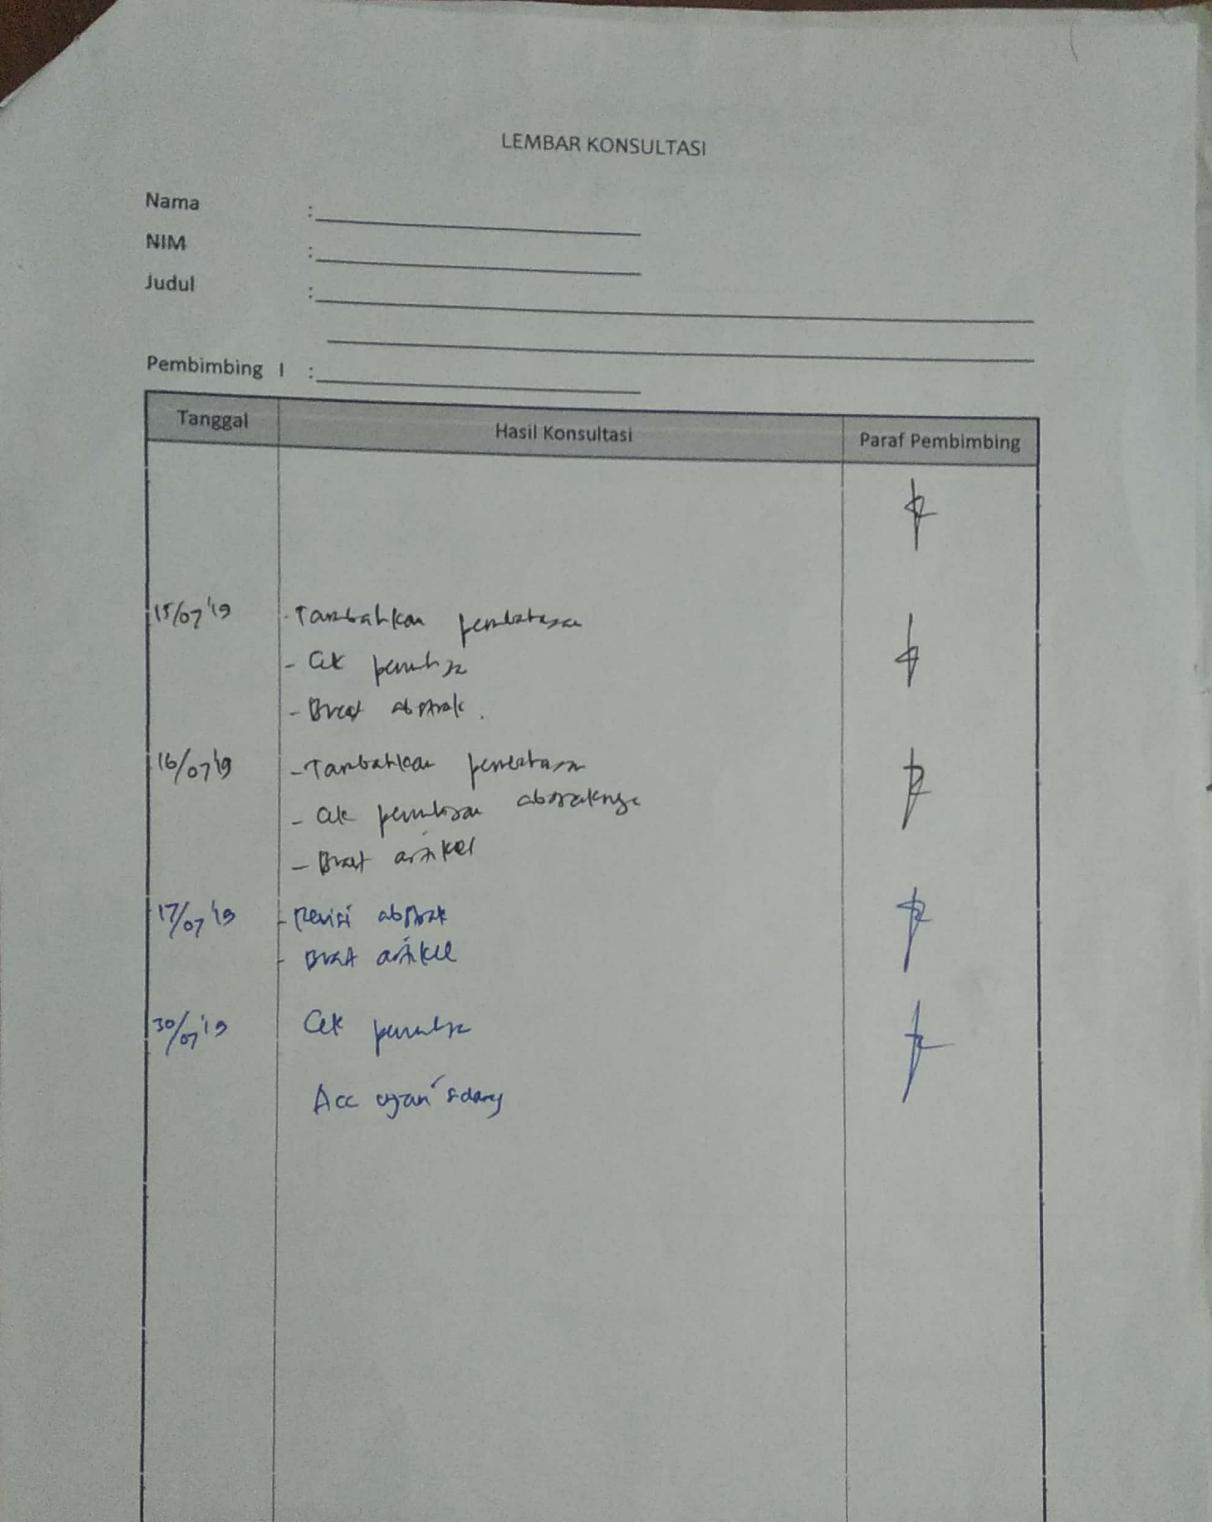 LEMBAR KONSULTASI
Nama :
NIM :
Judul :
Pembimbing I :
Tanggal Hasil Konsultasi Paraf Pembimbing
15/07'19 - Tambahkan pembahasan
- Cek
- Buat abstrak.
16/07'19 - Tambahkan pembahasan
- Cek penulisan abstraknya
- Buat artikel
17/07'19 - Revisi abstrak
- Buat artikel
30/07'19 Cek
Acc ujian sidang